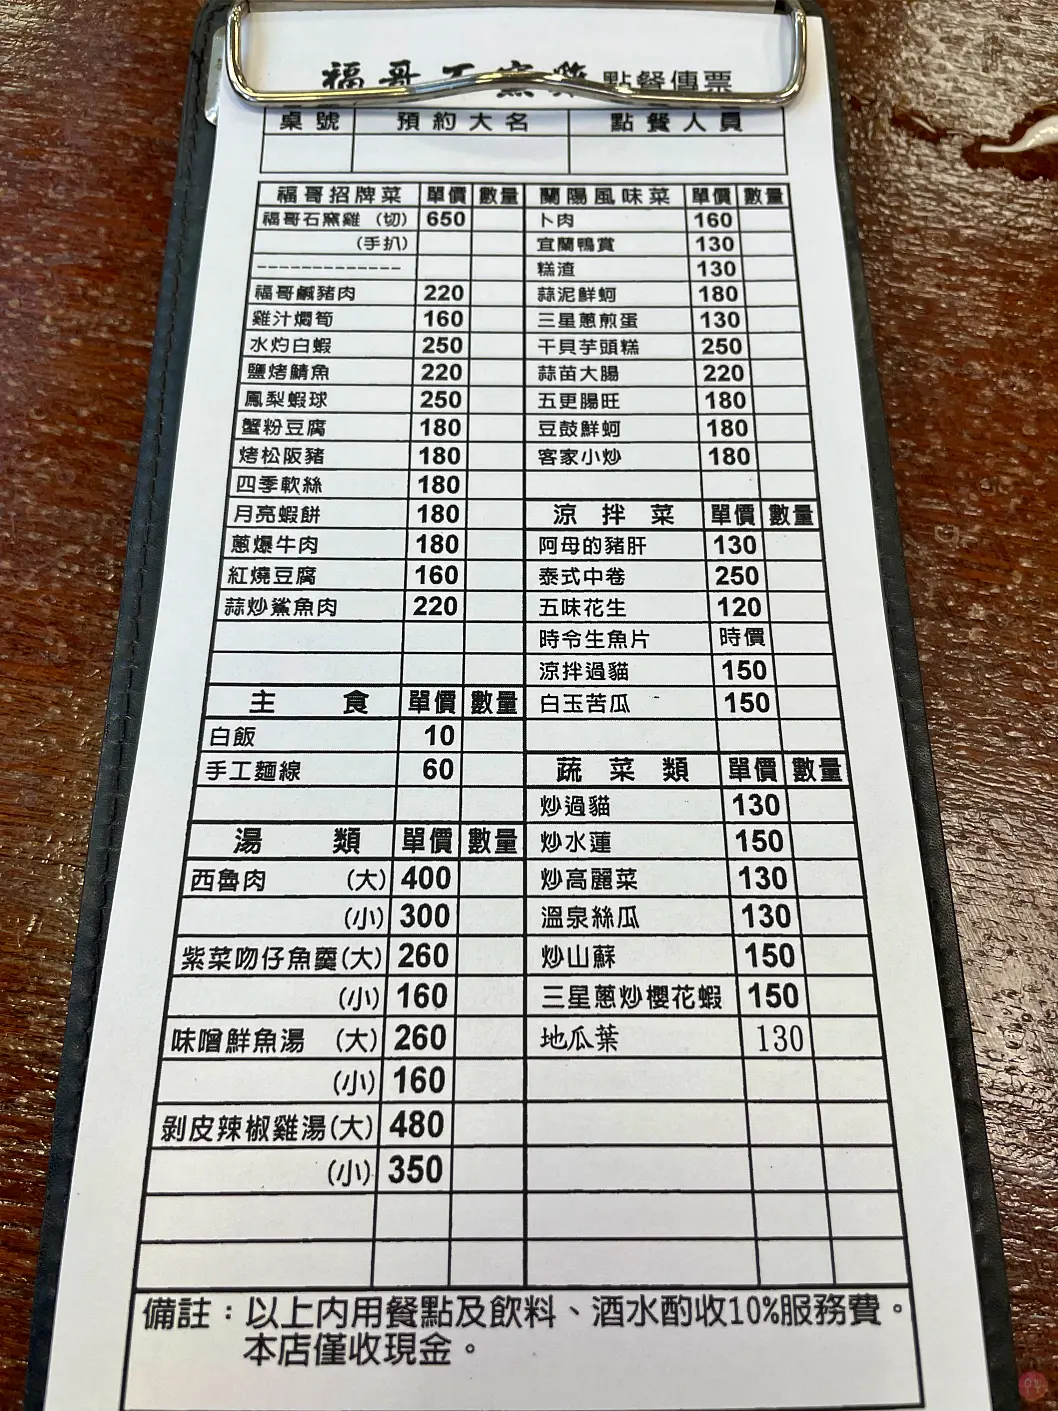 福哥石窯雞 點餐傳票
桌號 預約大名 點餐人員
福哥招牌菜 單價 數量
福哥石窯雞 (切) 650
(手扒)
-------------
福哥鹹豬肉 220
雞汁燜筍 160
水灼白蝦 250
鹽烤鯖魚 220
鳳梨蝦球 250
蟹粉豆腐 180
烤松阪豬 180
四季軟絲 180
月亮蝦餅 180
蔥爆牛肉 180
紅燒豆腐 160
蒜炒鯊魚肉 220
主食 單價 數量
白飯 10
手工麵線 60
湯類 單價 數量
西魯肉 (大) 400
(小) 300
紫菜吻仔魚羹(大) 260
(小) 160
味噌鮮魚湯 (大) 260
(小) 160
剝皮辣椒雞湯(大) 480
(小) 350
蘭陽風味菜 單價 數量
卜肉 160
宜蘭鴨賞 130
糕渣 130
蒜泥鮮蚵 180
三星蔥煎蛋 130
干貝芋頭糕 250
蒜苗大腸 220
五更腸旺 180
豆鼓鮮蚵 180
客家小炒 180
涼拌菜 單價 數量
阿母的豬肝 130
泰式中卷 250
五味花生 120
時令生魚片 時價
涼拌過貓 150
白玉苦瓜 150
蔬菜類 單價 數量
炒過貓 130
炒水蓮 150
炒高麗菜 130
溫泉絲瓜 130
炒山蘇 150
三星蔥炒櫻花蝦 150
地瓜葉 130
備註：以上內用餐點及飲料、酒水酌收10%服務費。
本店僅收現金。